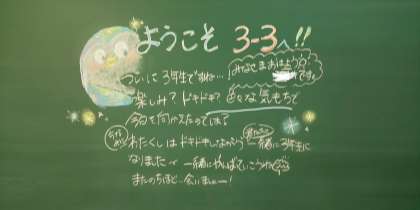 ようこそ 3-3へ!!
ついに 3年生ですね…!
みなさま おはようございます
楽しみ? ドキドキ? 色々な気もちで
今日を向かえたのでは?
わたくしは ドキドキしながら 一緒に3年生に
なりました
一緒にがんばっていこうね
またのちほど…会いましょー!